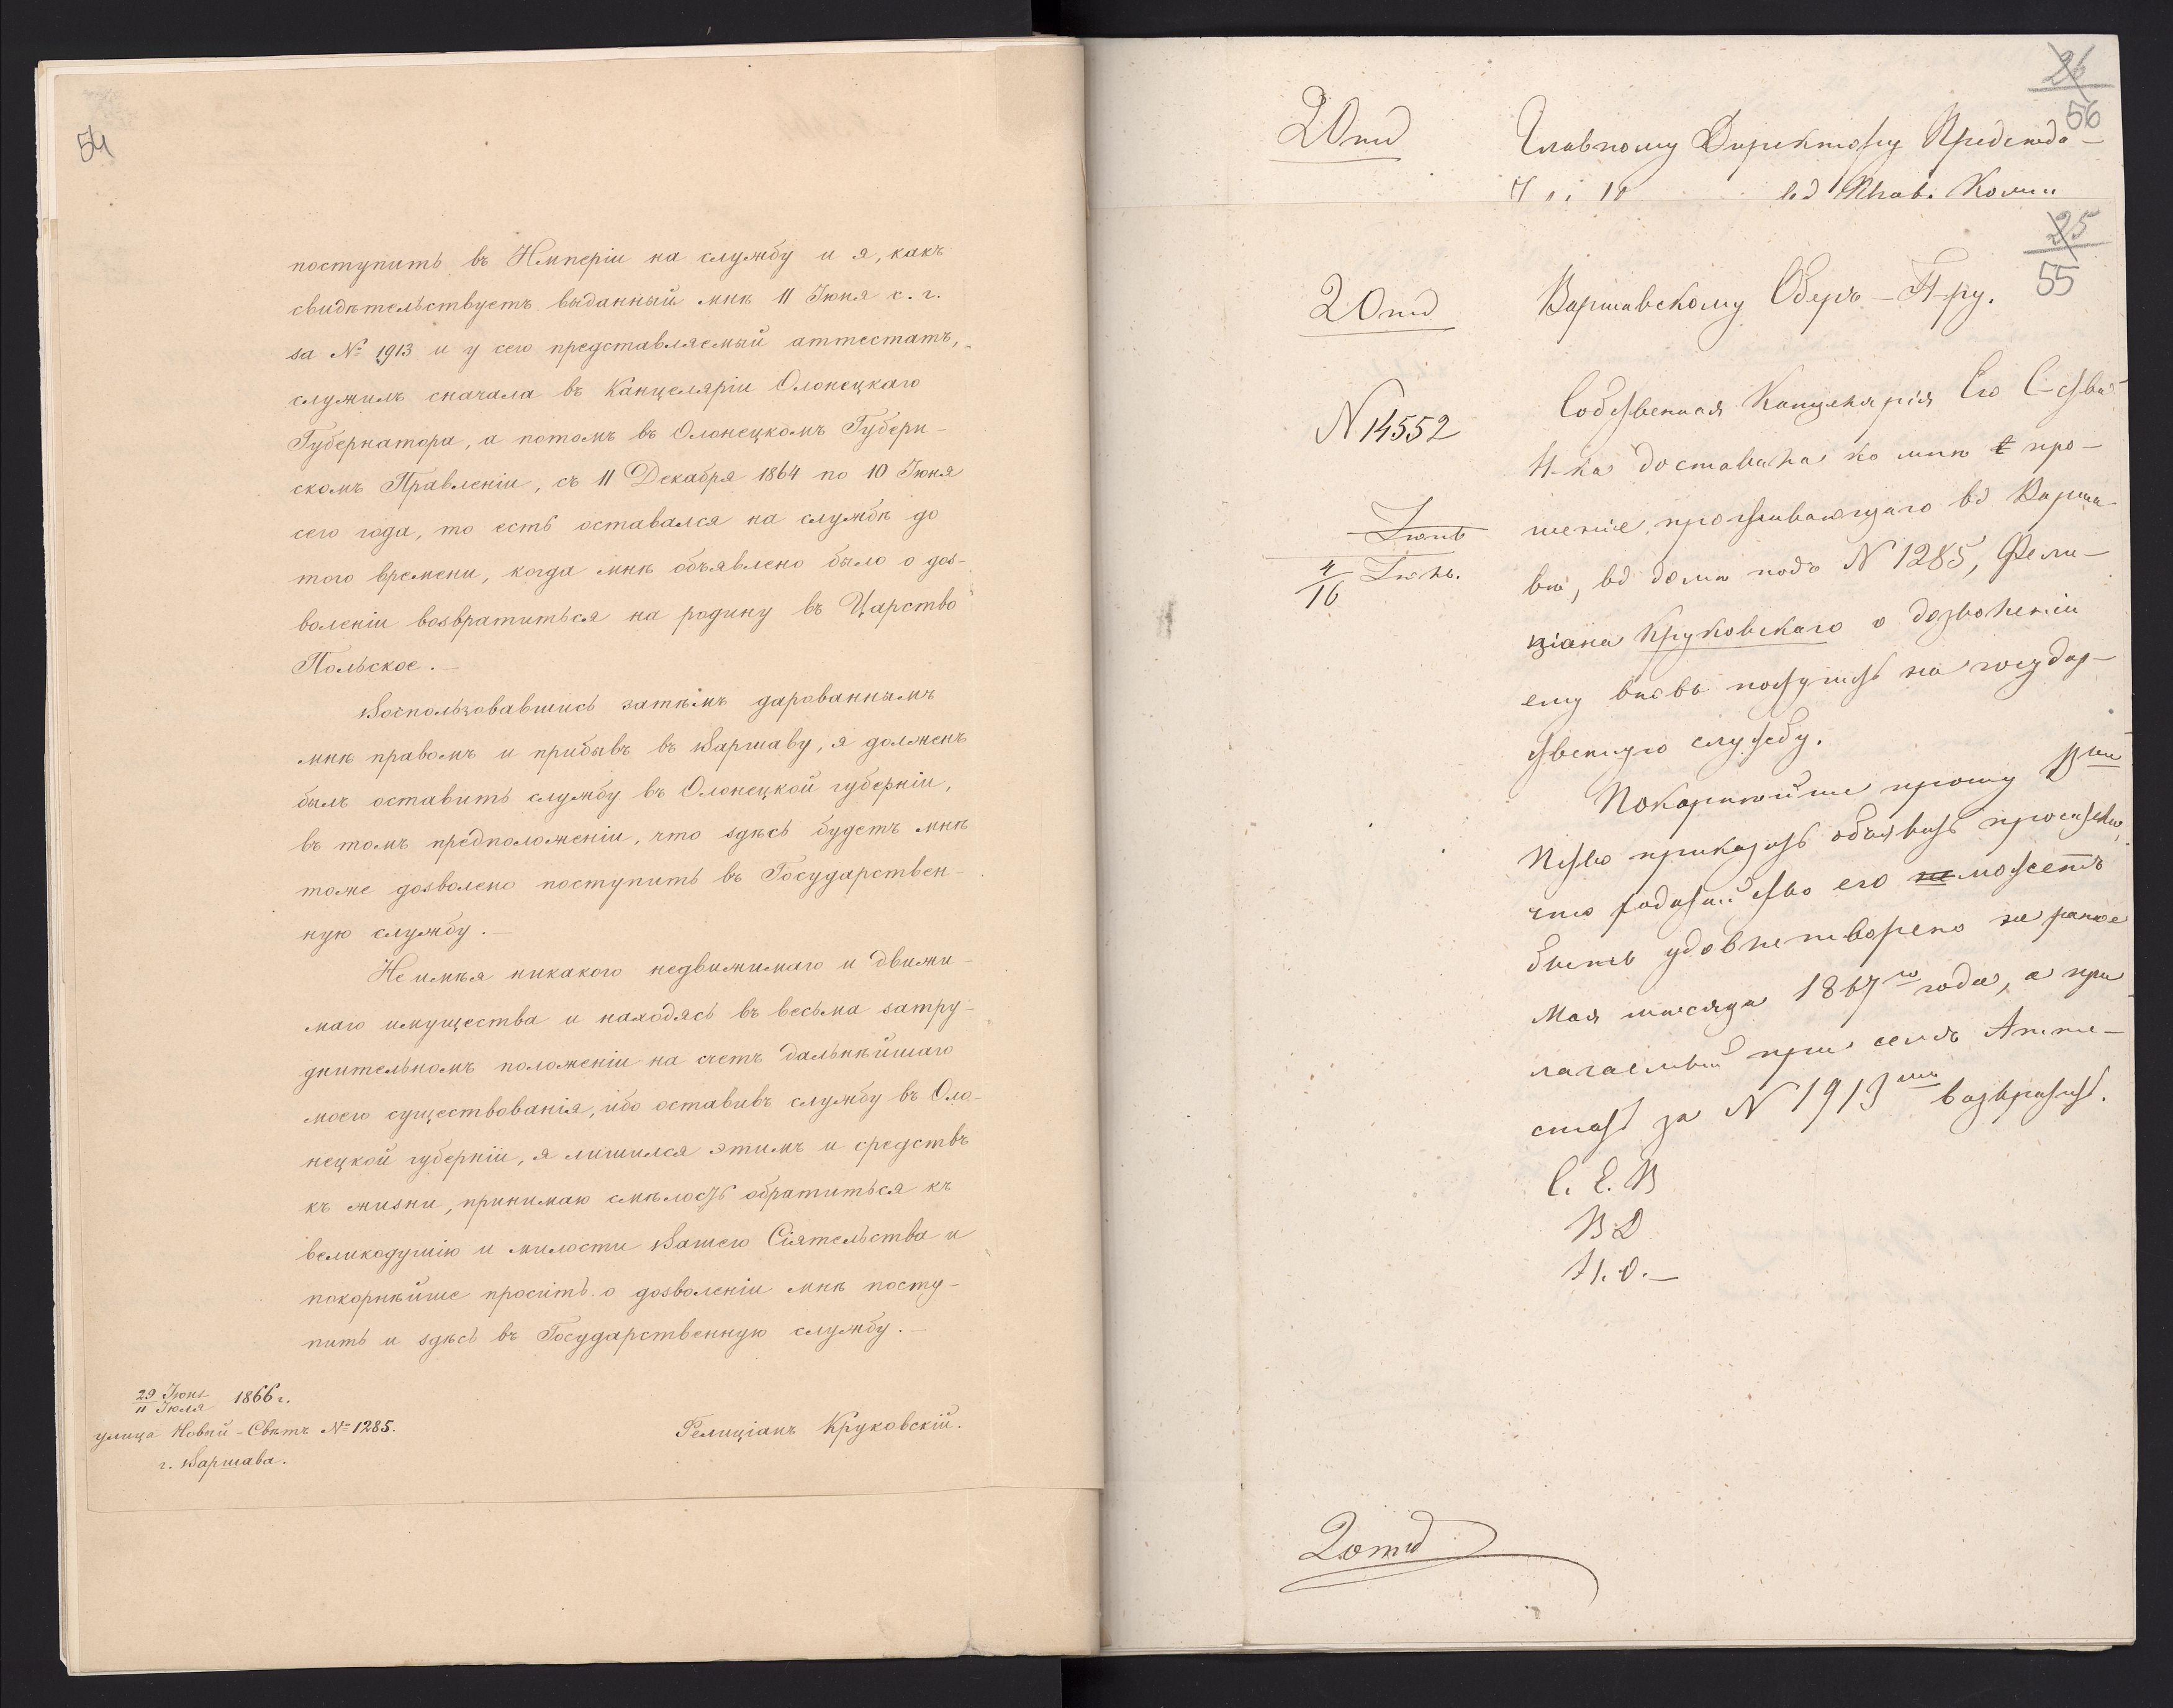 54
поступить въ Имперіи на службу и я, какъ
свидѣтельствуетъ выданный мнѣ 11 Іюня с. г.
за № 1913 и у сего представляемый аттестатъ,
служилъ сначала въ Канцеляріи Олонецкаго
Губернатора, а потомъ въ Олонецкомъ Губерн-
скомъ Правленіи, съ 11 Декабря 1864 по 10 Іюня
сего года, то есть оставался на службѣ до
того времени, когда мнѣ объявлено было о доз-
воленіи возвратиться на родину въ Царство
Польское.—
Воспользовавшись затѣмъ дарованнымъ
мнѣ правомъ и прибывъ въ Варшаву, я долженъ
былъ оставить службу въ Олонецкой губерніи,
въ томъ предположеніи, что здѣсь будетъ мнѣ
тоже дозволено поступить въ Государствен-
ную службу.—
Не имѣя никакого недвижимаго и движи-
маго имущества и находясь въ весьма затру-
днительномъ положеніи на счетъ дальнѣйшаго
моего существованія, ибо оставивъ службу въ Оло-
нецкой губерніи, я лишился этимъ и средствъ
къ жизни, принимаю смѣлость обратиться къ
великодушію и милости Вашего Сіятельства и
покорнѣйше просить о дозволеніи мнѣ посту-
пить и здѣсь въ Государственную службу.—
29 Іюня
11 Іюля 1866 г.
улица Новый-Свѣтъ № 1285.
г. Варшава.
Фелиціанъ Круковскій.
26
56
2 Отд
Главному Директору Предсѣда-
въ Прав. Комм
25
55
2 Отд
Варшавскому Оберъ-П-ру.
N 14552
Іюнь
4/16 Іюль.
Собственная Канцелярія Его С-ства
Н-ка доставила ко мнѣ про-
шеніе проживающаго въ Варша-
вѣ, въ домѣ подъ N 1285, Фели-
ціана Круковскаго о дозволеніи
ему вновь поступить на государ-
ственную службу.
Покорнѣйше прошу В
приказать объявить просителю,
что ходатайство его не можетъ
быть удовлетворено не ранѣе
Мая мѣсяца 1867го года, а при-
лагаемый при семъ Атте-
статъ за N 1913 возвратить.
С. Е. В
В. Д
Н. О.—
2 отд